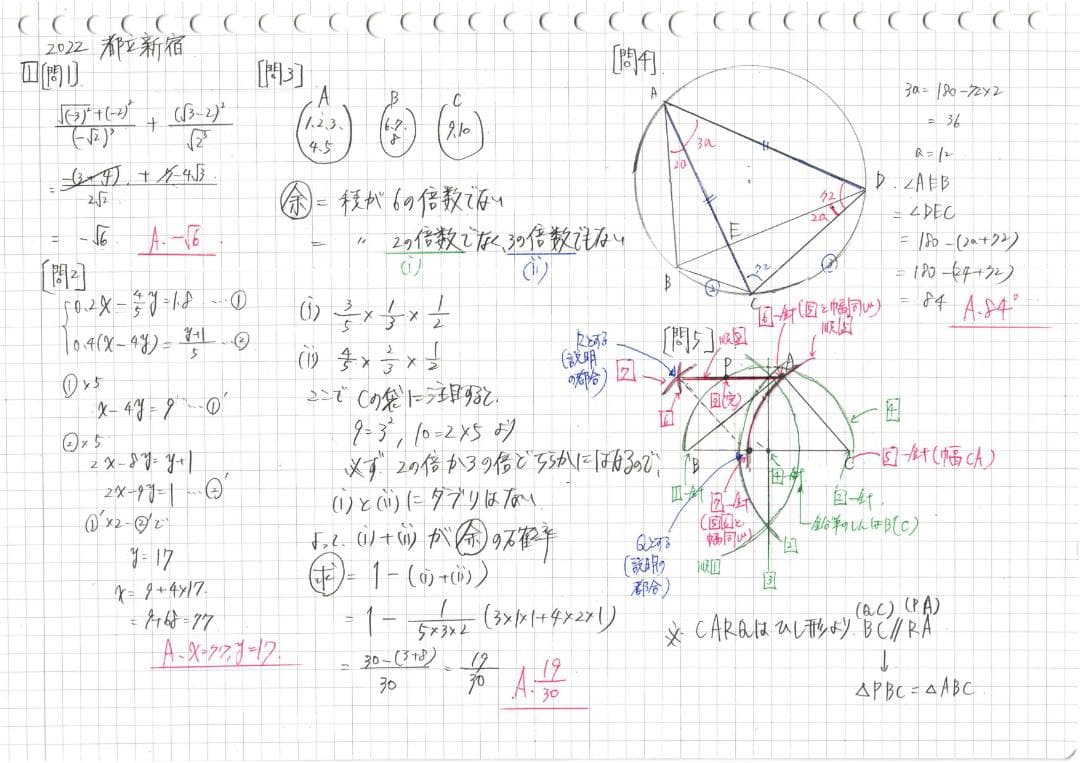 2022 都立新宿
1 [問1]
√(-3)²+(-2)² / (-√2)³ + (√3-2)² / √2³
= -(3+4) / 2√2 + 7-4√3
= -√6 A. -√6
[問2]
{0.2x - 4/5 y = 1.8 … ①
0.4(x-4y) = y+1 / 5 … ②
①×5
x-4y=9 …①′
②×5
2x-8y=y+1
2x-9y=1 …②′
①′×2-②′で
y=17
x=9+4×17
=9+68=77
A. x=77, y=17
[問3]
A B C
1.2.3. 6.7. 9.10
4.5 8
余 = 積が6の倍数でない
= 〃 2の倍数でなく、3の倍数でもない
(i) (ii)
(i) 3/5 × 1/3 × 1/2
(ii) 4/5 × 2/3 × 1/2
ここで Cの袋に注目すると、
9=3², 10=2×5 より
必ず 2の倍か3の倍どちらかにはなるので、
(i)と(ii)にダブりはない
よって、(i)+(ii)が余の確率
求 = 1-((i)+(ii))
= 1 - 1/5×3×2 (3×1×1+4×2×1)
= 30-(3+8) / 30 = 19/30 A. 19/30
[問4]
A
3a
2a
D
72
2a
E
B
72
C
②
③
3a=180-72×2
=36
a=12
∠AEB
=∠DEC
=180-(2a+72)
=180-(24+72)
=84 A. 84°
[問5]
Rとする
(説明の都合)
順8
6-針(5と幅同じ)
順5
P
A
7
6
8(完)
4
B
C
5-針(幅CA)
1-針
4-針
2-針
鉛筆のしんはB(C)
7-針
(5 6と幅同じ)
Qとする
(説明の都合)
順1
2
3
(QC) (PA)
※ CARQはひし形より BC//RA
↓
△PBC=△ABC